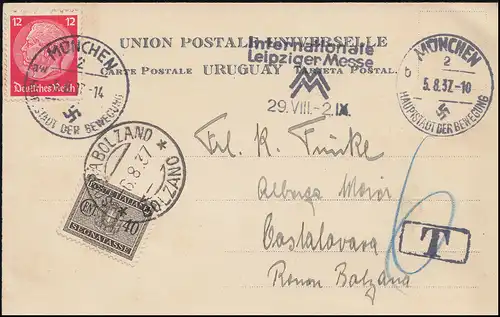 12 12
Deutsches Reich
MÜNCHEN
2
HAUPTSTADT DER BEWEGUNG
UNION POSTALE UNIVERSELLE
CARTE POSTALE URUGUAY TARJETA POSTAL
Internationale
Leipziger Messe
29.VIII.-2.IX.
MÜNCHEN
2
b
5.8.37.-10
HAUPTSTADT DER BEWEGUNG
BOLZANO
6.8.37
BOLZANO
POSTE ITALIANE
CENT. 40
SEGNATASSE
Frl. K.
Castalovara
6
T